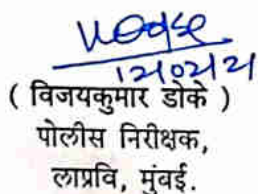 12/02/21
( विजयकुमार डोके )
पोलीस निरीक्षक,
लाप्रवि, मुंबई.